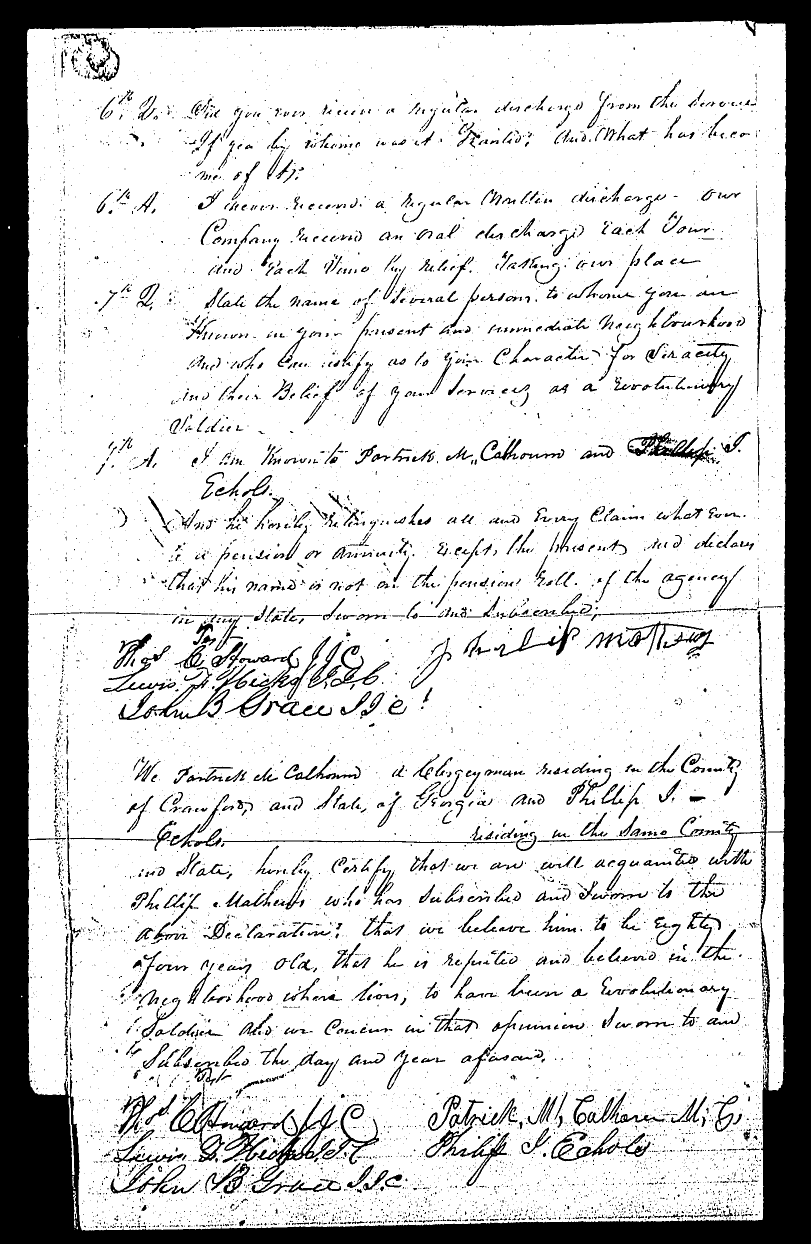 6th Q. Did you ever receive a regular discharge from the Service
If yea by whome was it Granted; And What has beco
me of it.
6th A. I never received a regular Written discharge - our
Company received an oral discharge Each Tour
and Each Time by relief. Taking our place
7th Q. State the name of Several persons to whome you are
Known in your present and immediate Neighbourhood
and who can testify as to your Character for Veracity
and their Belief of your Services as a Revolutionary
Soldier
7th A. I am Known to Partrick M,, Calhourn and Phillip J.
Echols.
And he hereby relinquishes all and Every Claim what Ever
to a pension or annuity. Except the present and declares
that his name is not on the pension Roll. of the agency
in any State, Sworn to and Subscribed;
Test
Thos C Howard JJC
Philip Mathews
Lewis F. Hicks J.J.C.
John B Grace J.J.C
We Partrick M Calhourn a Clergeyman residing in the County
of Crawford, and State, of Georgia and Phillip J. -
Echols. residing in the Same County
and State, hereby Certify that we are well acquainted with
Phillip Mathews who has Subscribed and Sworn to the
above Declaration: that we believe him to be Eighty
four years old, that he is reputed and believed in the
Neighborhood where lives, to have been a Revolutionary
Soldier and we Concur in that opinion Sworn to and
Subscribed the day and year afosaid.
Test
Thos C Howard JJC
Patrick, M, Calhoun M, G,
Lewis F. Hicks J.J.C
Philip J. Echols
John B Grace J.J.C.